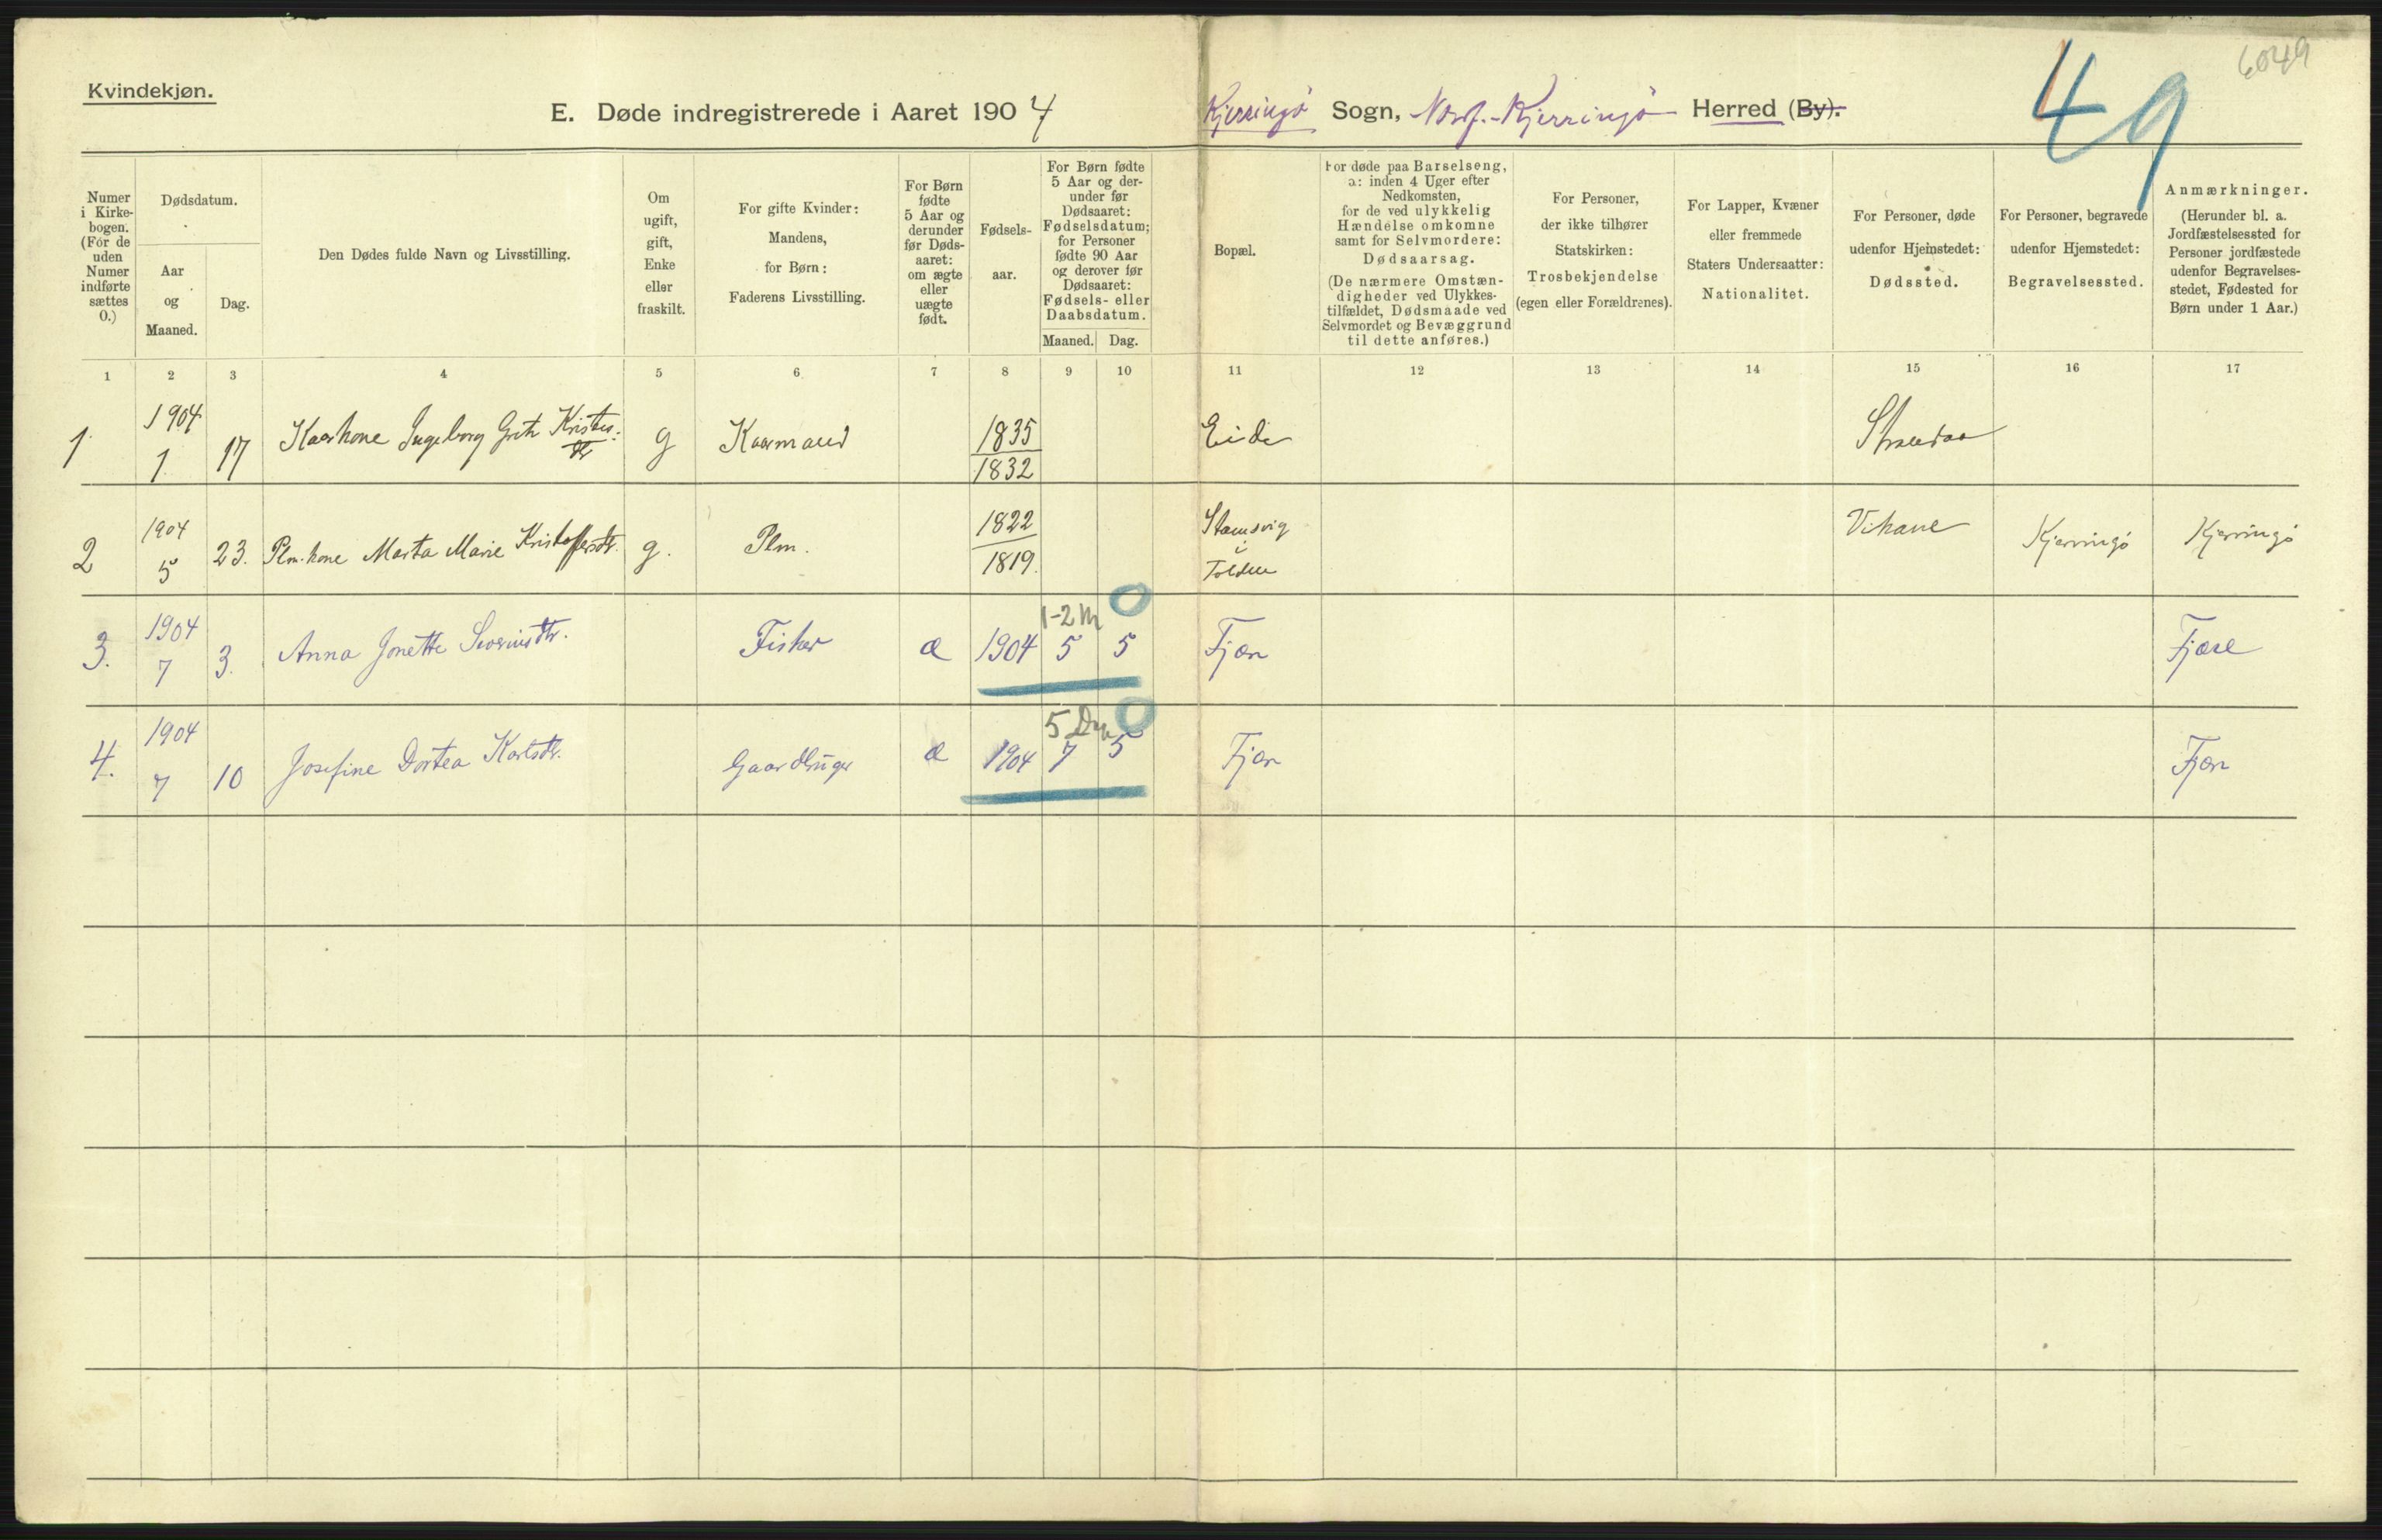 6049
49
Kvindekjøn.
E. Døde indregistrerede i Aaret 1904. Kjerringö Sogn, Nordf.-Kjerringö Herred (By).
Numer i Kirke-bogen. (For de uden Numer indførte sættes 0.)
Dødsdatum.
Aar og Maaned.
Dag.
Den Dødes fulde Navn og Livsstilling.
Om ugift, gift, Enke eller fraskilt.
For gifte Kvinder: Mandens, for Børn: Faderens Livsstilling.
For Børn fødte 5 Aar og derunder før Døds-aaret: om ægte eller uægte født.
Fødsels-aar.
For Børn fødte 5 Aar og der-under før Dødsaaret: Fødselsdatum; for Personer fødte 90 Aar og derover før Dødsaaret: Fødsels- eller Daabsdatum.
Maaned. Dag.
Bopæl.
For døde paa Barselseng, ɔ: inden 4 Uger efter Nedkomsten, for de ved ulykkelig Hændelse omkomne samt for Selvmordere: Dødsaarsag. (De nærmere Omstæn-digheder ved Ulykkes-tilfældet, Dødsmaade ved Selvmordet og Bevæggrund til dette anføres.)
For Personer, der ikke tilhører Statskirken: Trosbekjendelse (egen eller Forældrenes).
For Lapper, Kvæner eller fremmede Staters Undersaatter: Nationalitet.
For Personer, døde udenfor Hjemstedet: Dødssted.
For Personer, begravede udenfor Hjemstedet: Begravelsessted.
Anmærkninger. (Herunder bl. a. Jordfæstelsessted for Personer jordfæstede udenfor Begravelses-stedet, Fødested for Børn under 1 Aar.)
1 2 3 4 5 6 7 8 9 10 11 12 13 14 15 16 17
1 1904 1 17 Kaarkone Ingeborg g Kaarmand 1835 1832 Eide
2 1904 5 23. Plm.kone Marta Marie Kristoffersdtr. g. Plm. 1822 1819. i Vikane Kjerringö Kjerringö
1-2 M 0
3. 1904 7 3. Anna Jonette Fisker Æ 1904 5 5 Fjære Fjære
5 D 0
4. 1904 7 10 Josefine Dortea Karlsdtr. Gaardbruger Æ 1904 7 5 Fjære Fjære